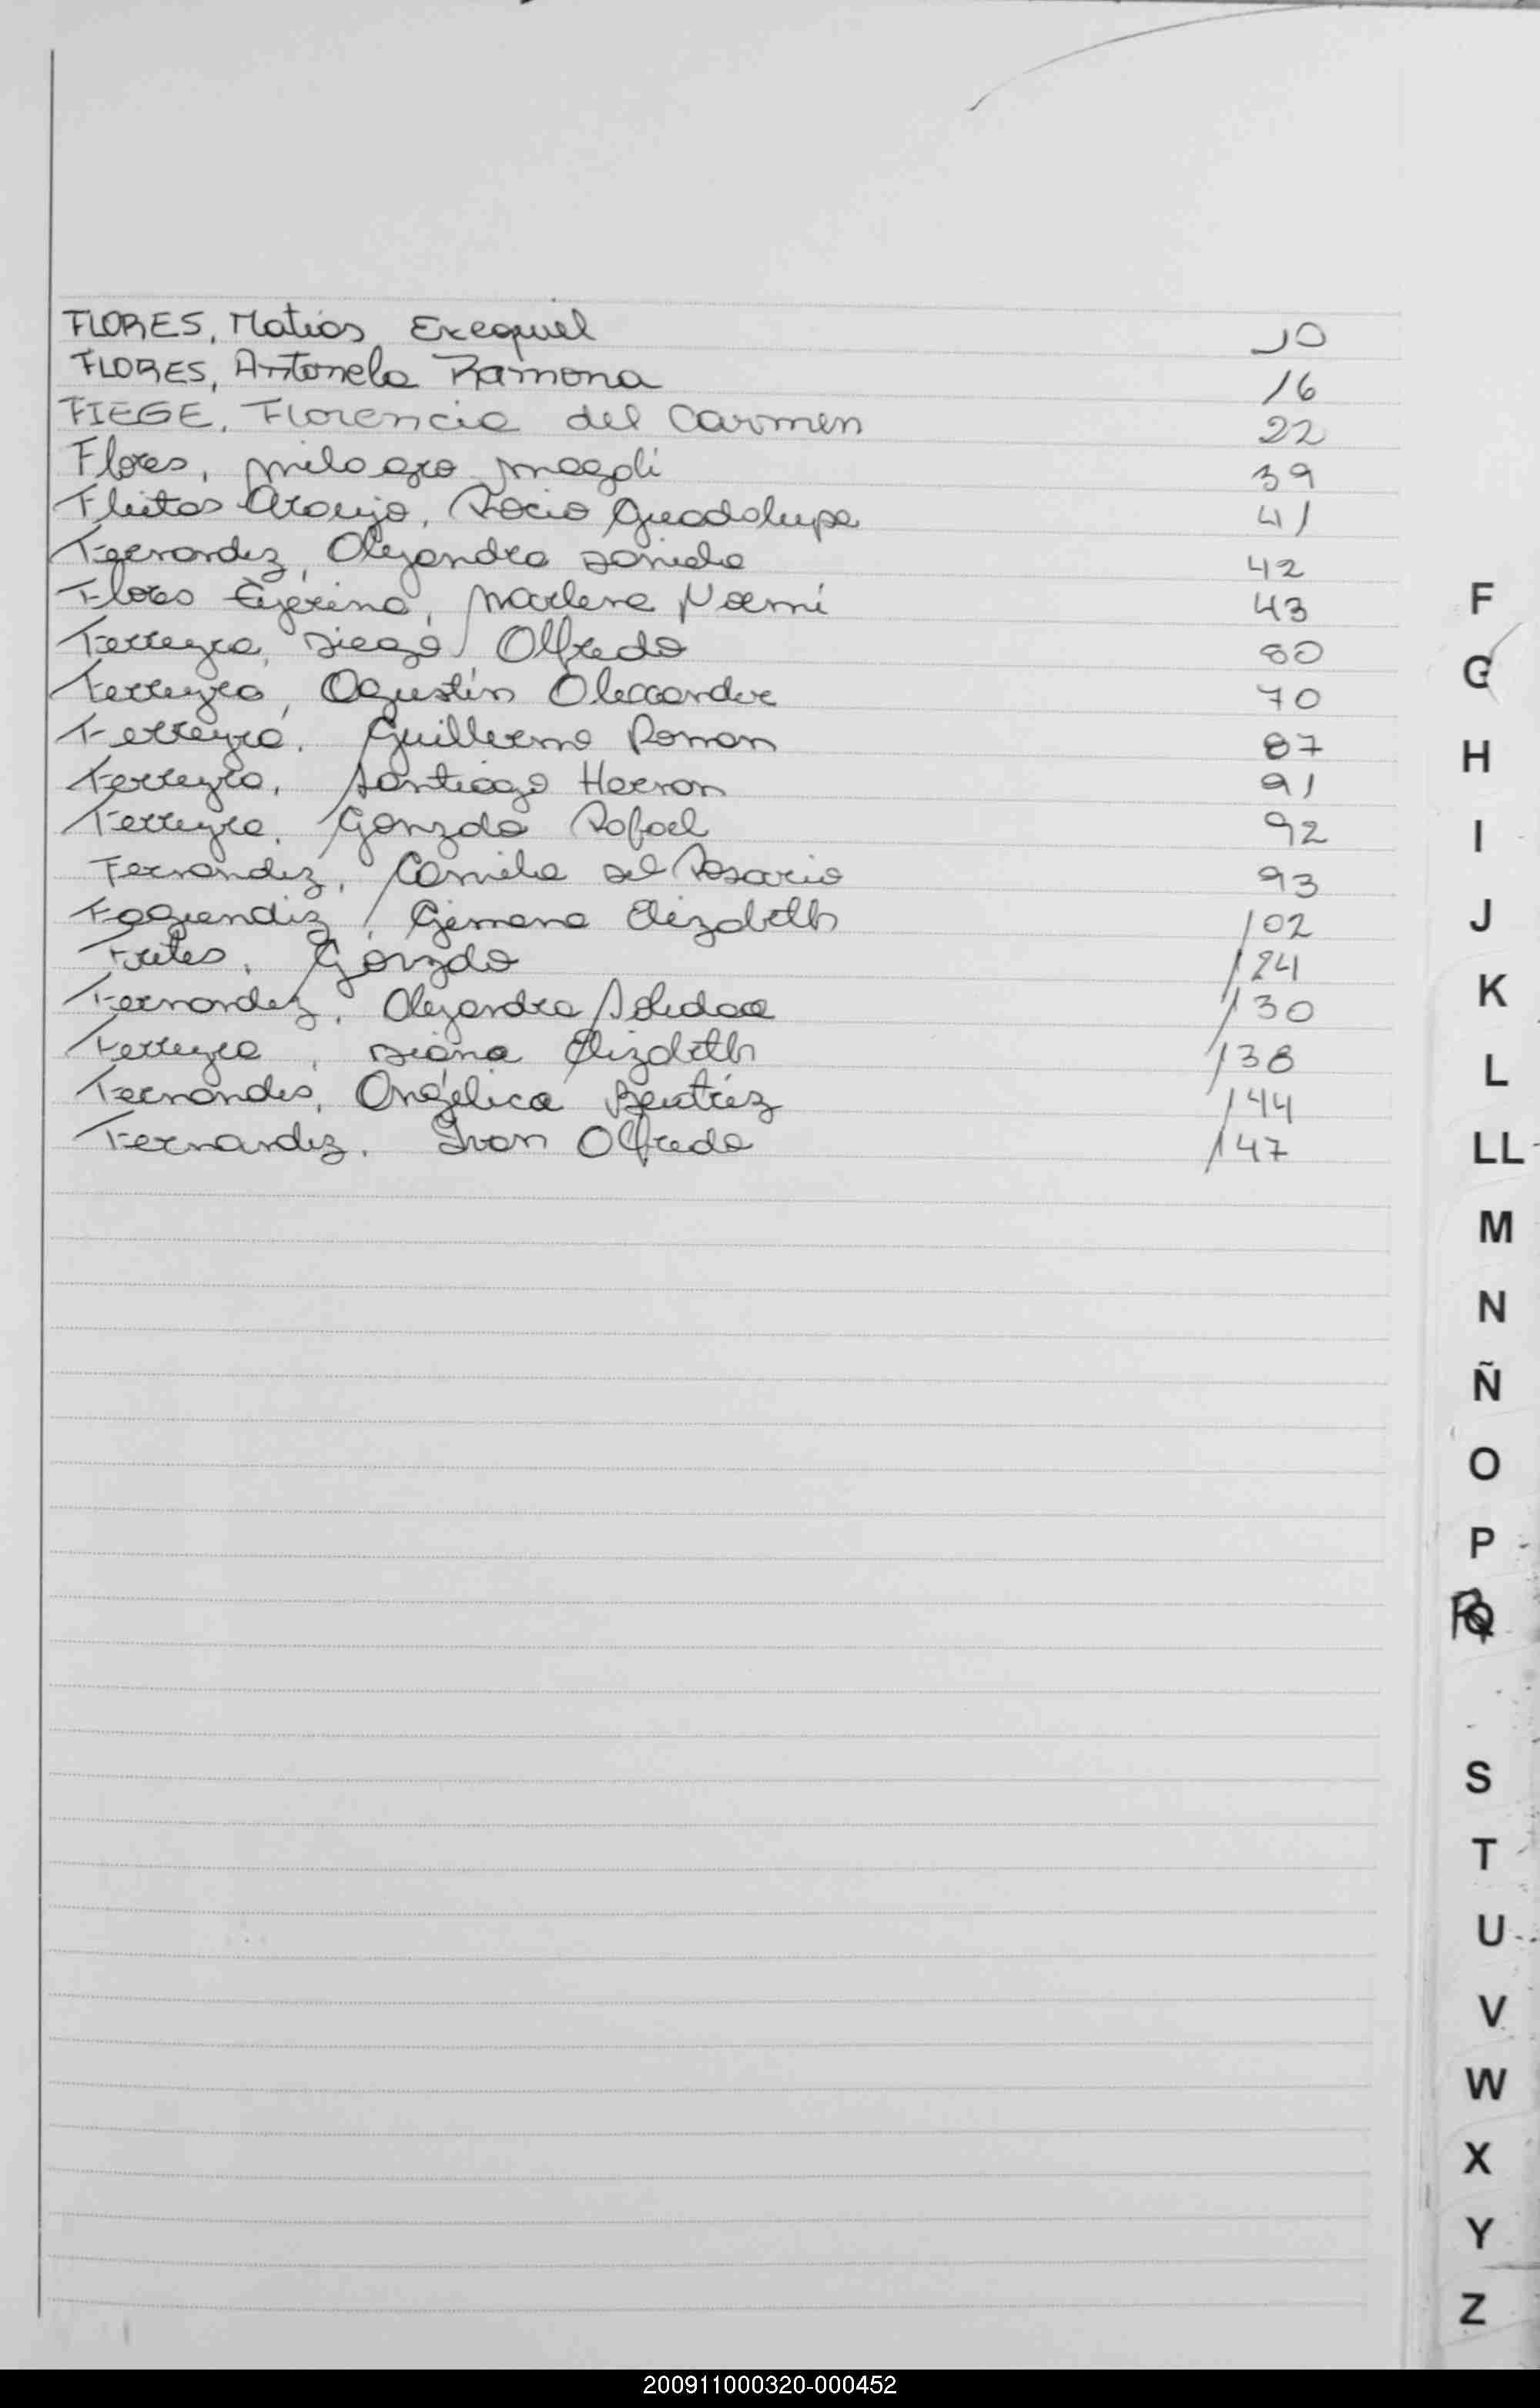 FLORES, Matias Exequiel 10
FLORES, Antonela Ramona 16
FIEGE, Florencia del Carmen 22
Flores, milagro magali 39
Fleitas Araujo, Rocio Guadalupe 41
Fernandez, Alejandra Daniela 42
Flores Tijerina, Marlene Noemi 43
Ferreyra, Diego Alfredo
Ferreyra, Agustín Alexander 70
Ferreyra, Guillermo Roman 87
Ferreyra, Santiago Hernan 91
Ferreyra, Gonzalo Rafael 92
Fernandez, Camila del Rosario 93
Fagundiz, Gimena Elizabeth 102
Fretes, Gonzalo 124
Fernandez, Alejandra Soledad 130
Ferreyra, Diana Elizabeth 138
Fernandes, Angélica Beatriz 144
Fernandez, Ivan Alfredo 147
F
G
H
I
J
K
L
LL
M
N
Ñ
O
P
R
S
T
U
V
W
X
Y
Z
200911000320-000452